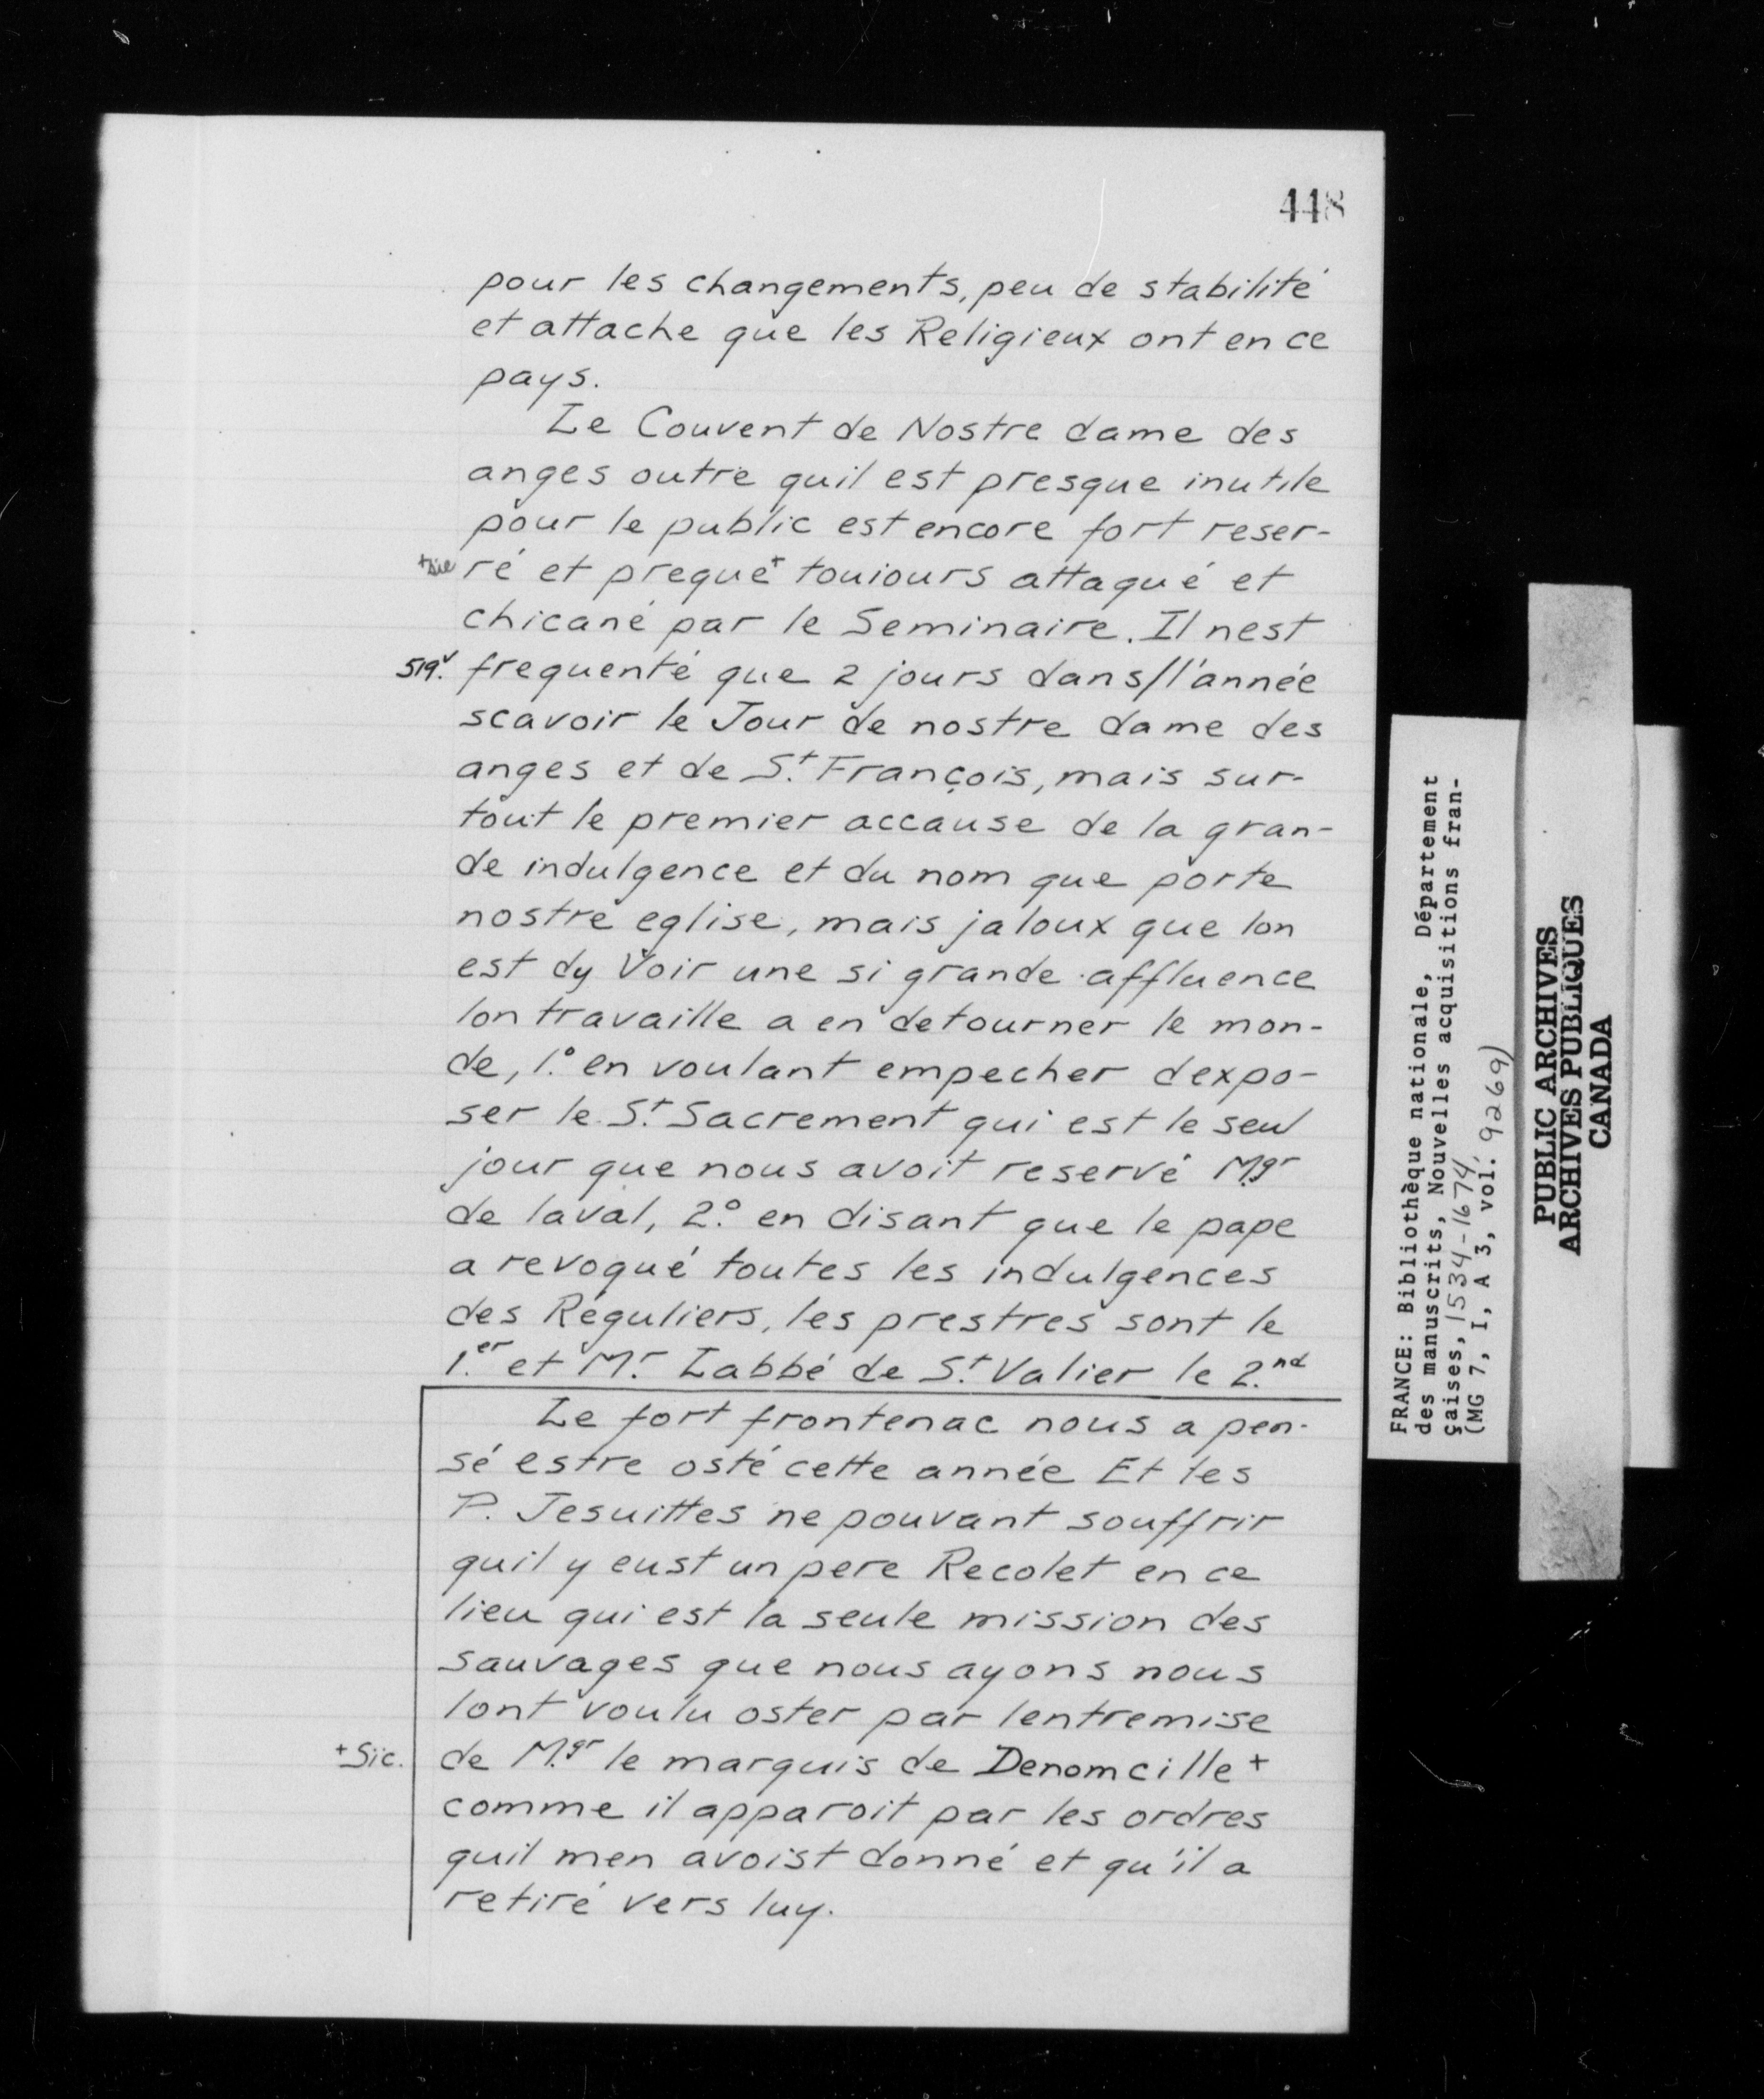 448
pour les changements, peu de stabilité
et attache que les Religieux ont en ce
pays.
Le Couvent de Nostre dame des
anges outre quil est presque inutile
pour le public est encore fort reser-
+sic ré et preque+ touiours attaqué et
chicané par le Seminaire. Il nest
519v. frequenté que 2 jours dans//l'année
scavoir le Jour de nostre dame des
anges et de St. François, mais sur-
tout le premier accause de la gran-
de indulgence et du nom que porte
nostre eglise, mais jaloux que lon
est dy Voir une si grande affluence
lon travaille a en detourner le mon-
de, 1.° en voulant empecher dexpo-
ser le St. Sacrement qui est le seul
jour que nous avoit reservé Mgr
de laval, 2.° en disant que le pape
a revoqué toutes les indulgences
des Réguliers, les prestres sont le
1.er et Mr. Labbé de St. Valier le 2.nd
Le fort frontenac nous a pen-
sé estre osté cette année Et les
P. Jesuittes ne pouvant souffrir
quil y eust un pere Recolet en ce
lieu qui est la seule mission des
sauvages que nous ayons nous
lont voulu oster par lentremise
+ Sic. de M.gr le marquis de Denomcille +
comme il apparoit par les ordres
quil men avoist donné et qu'il a
retiré vers luy.
FRANCE: Bibliothèque nationale, Département
des manuscrits, Nouvelles acquisitions fran-
çaises, 1534-1674,
(MG 7, I, A 3, vol. 9269)
PUBLIC ARCHIVES
ARCHIVES PUBLIQUES
CANADA